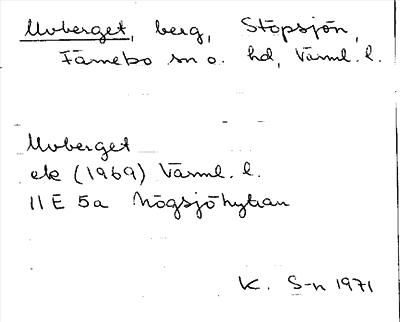 Uvberget, berg, Stöpsjön,
Färnebo sn o. hd, Värml. l.
Uvberget
ek (1969) Värml. l.
11 E 5a Högsjöhyttan
K. S-n 1971